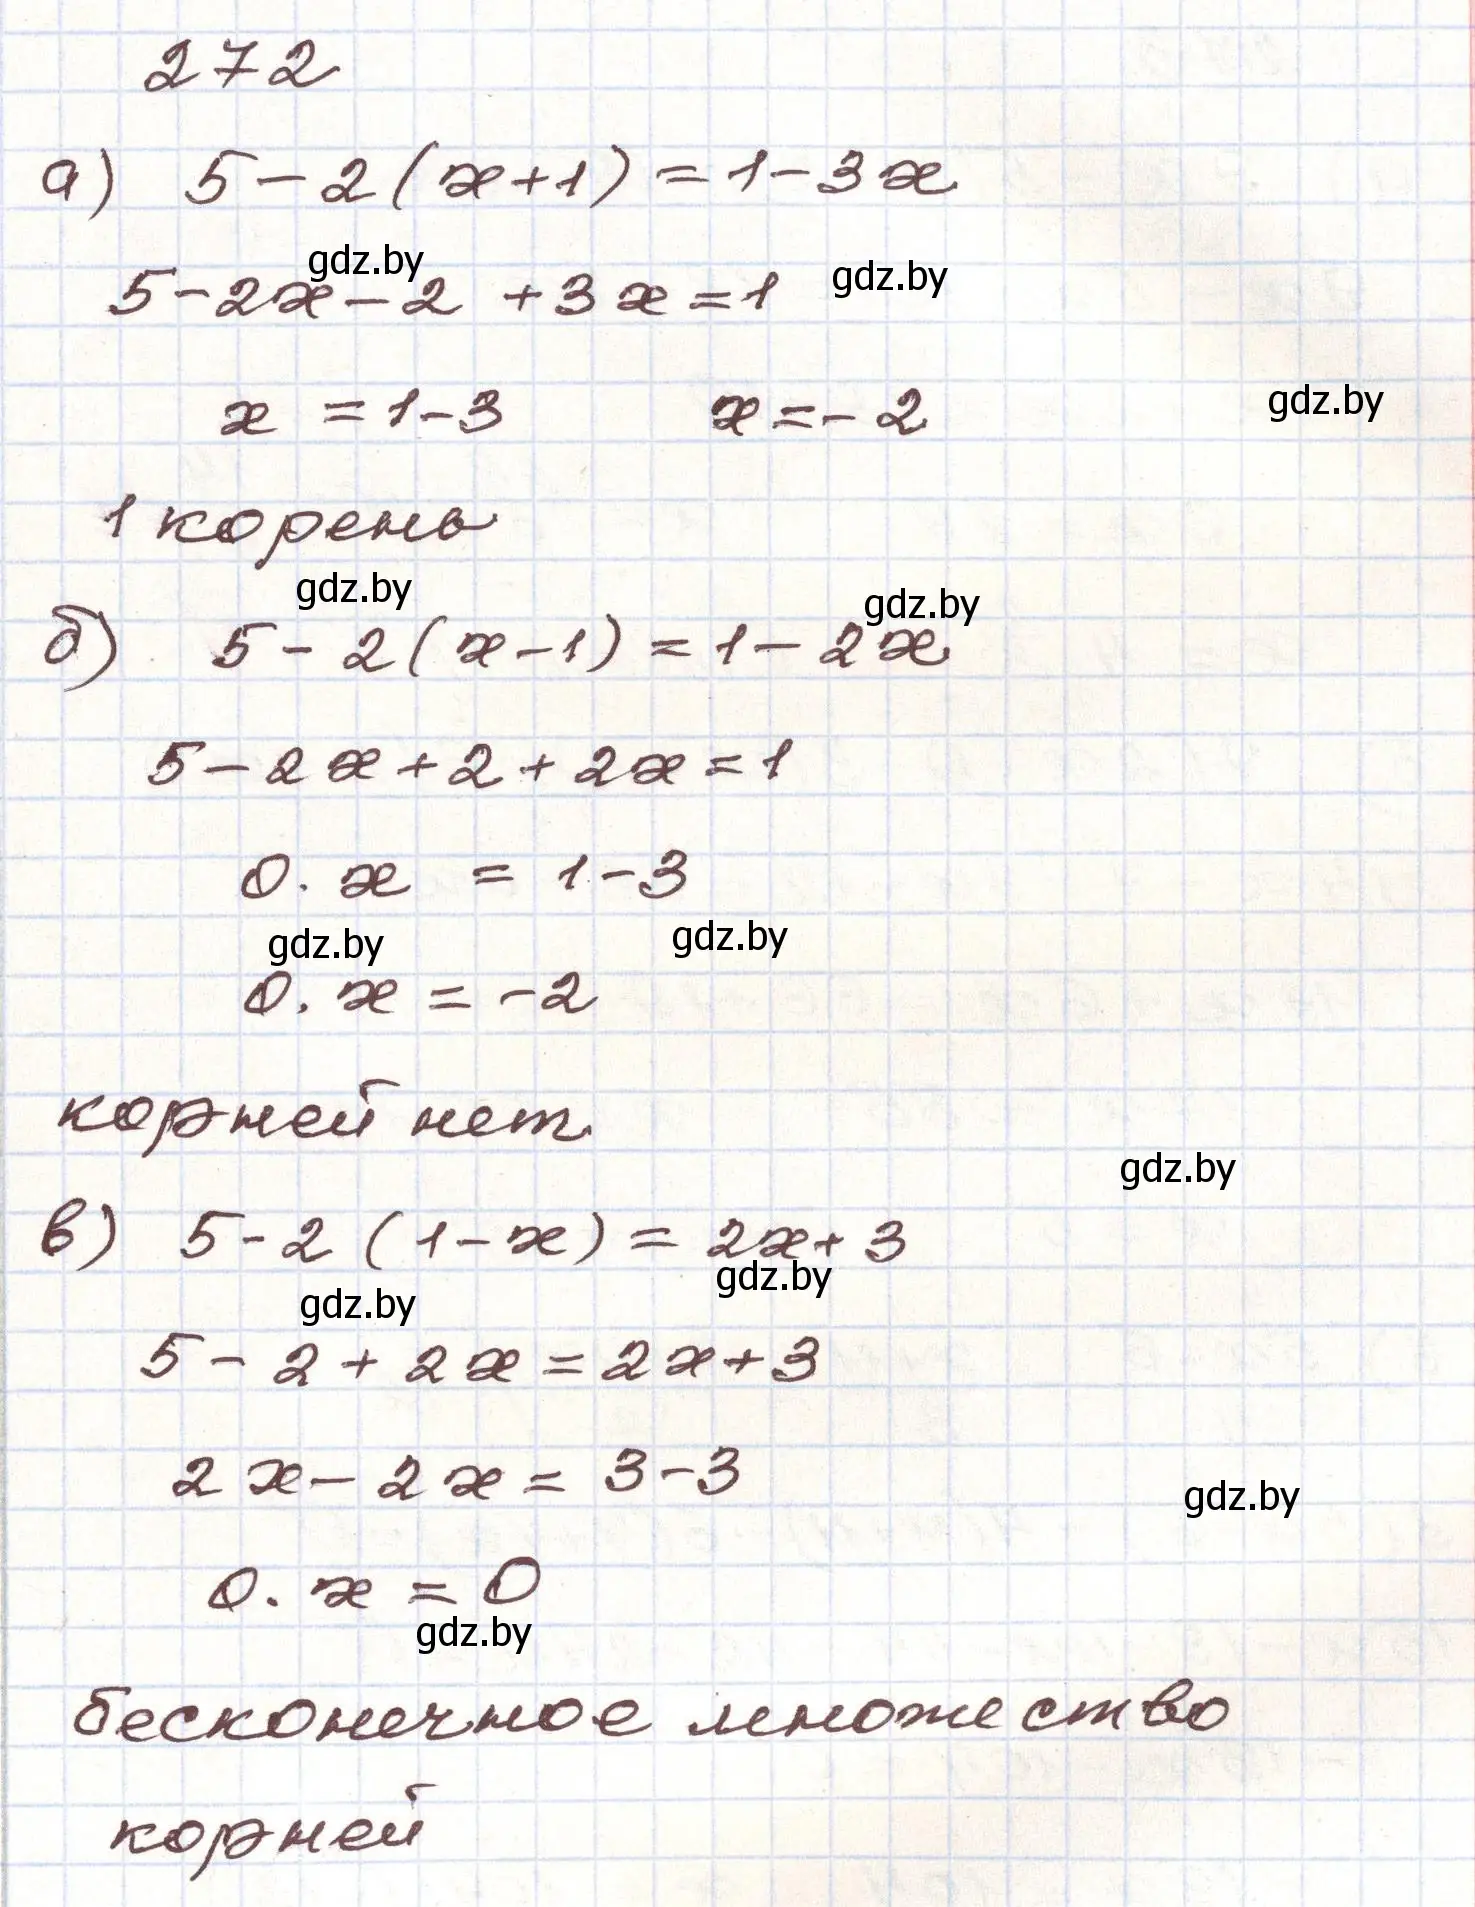 272
а) 5 - 2(x+1) = 1 - 3x
gdz.by
gdz.by
5 - 2x - 2 + 3x = 1
x = 1 - 3 x = - 2
gdz.by
1 корень
gdz.by
gdz.by
б) 5 - 2(x-1) = 1 - 2x
5 - 2x + 2 + 2x = 1
0. x = 1 - 3
gdz.by
gdz.by
0. x = -2
корней нет
gdz.by
в) 5 - 2 (1 - x) = 2x + 3
gdz.by
gdz.by
5 - 2 + 2x = 2x + 3
2x - 2x = 3 - 3
gdz.by
0. x = 0
gdz.by
бесконечное множество
корней